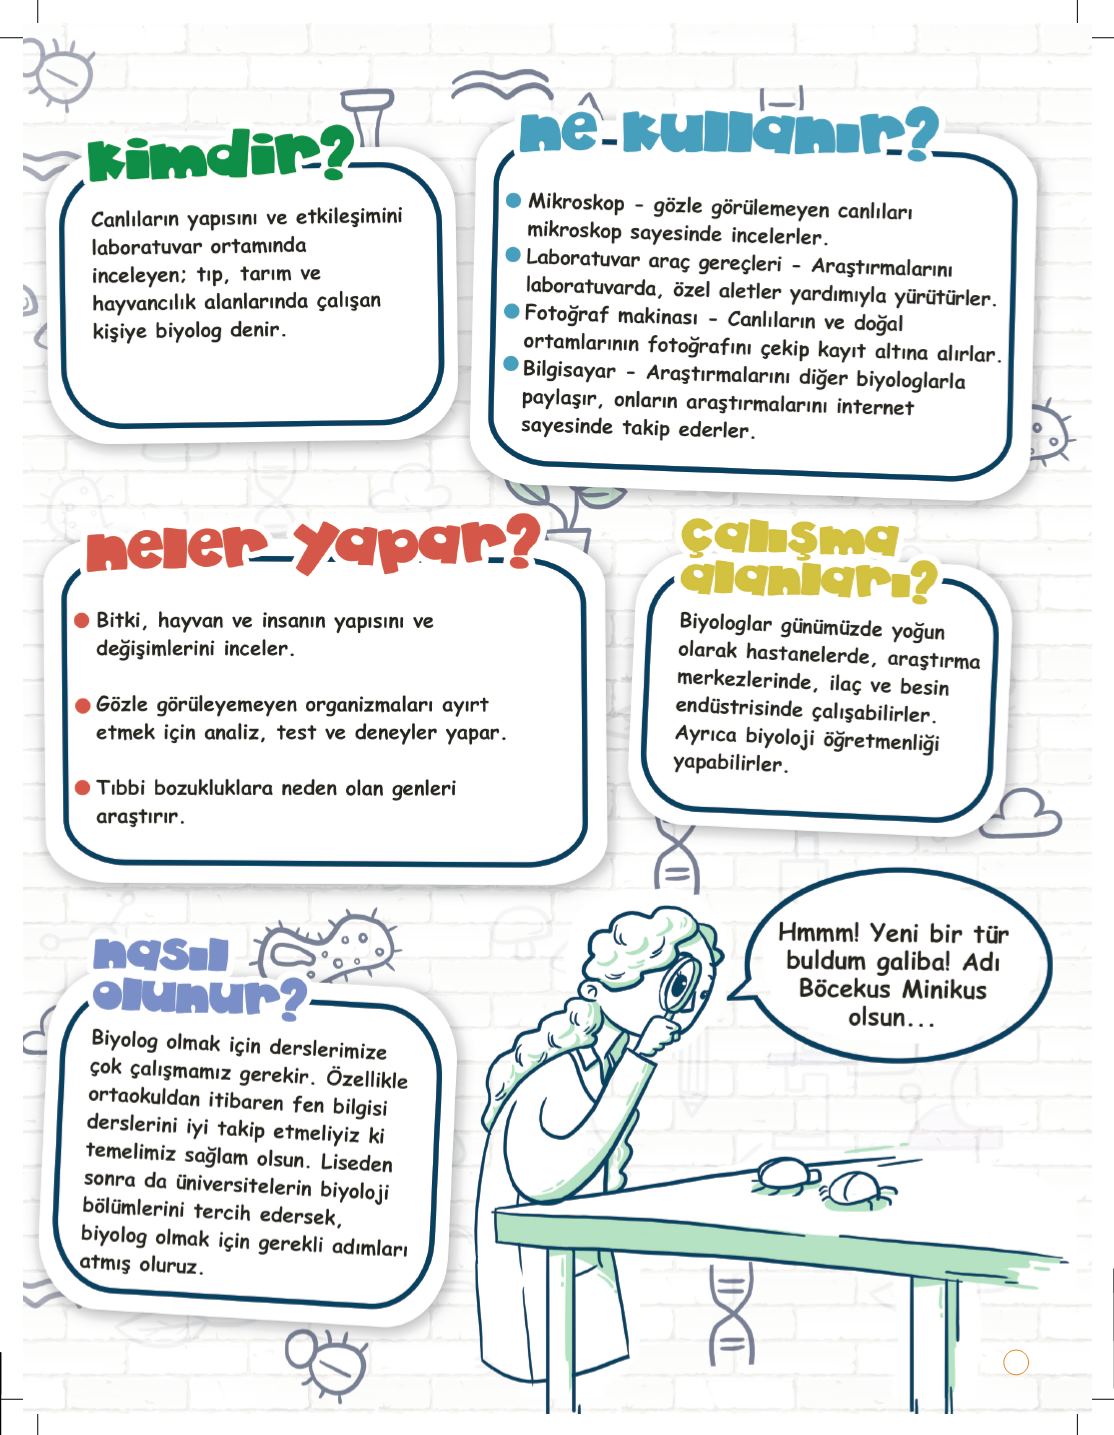 kimdir?
Canlıların yapısını ve etkileşimini
laboratuvar ortamında
inceleyen; tıp, tarım ve
hayvancılık alanlarında çalışan
kişiye biyolog denir.
ne kullanır?
Mikroskop - gözle görülemeyen canlıları
mikroskop sayesinde incelerler.
Laboratuvar araç gereçleri - Araştırmalarını
laboratuvarda, özel aletler yardımıyla yürütürler.
Fotoğraf makinası - Canlıların ve doğal
ortamlarının fotoğrafını çekip kayıt altına alırlar.
Bilgisayar - Araştırmalarını diğer biyologlarla
paylaşır, onların araştırmalarını internet
sayesinde takip ederler.
neler yapar?
Bitki, hayvan ve insanın yapısını ve
değişimlerini inceler.
Gözle görüleyemeyen organizmaları ayırt
etmek için analiz, test ve deneyler yapar.
Tıbbi bozukluklara neden olan genleri
araştırır.
çalışma
alanları?
Biyologlar günümüzde yoğun
olarak hastanelerde, araştırma
merkezlerinde, ilaç ve besin
endüstrisinde çalışabilirler.
Ayrıca biyoloji öğretmenliği
yapabilirler.
nasıl
olunur?
Biyolog olmak için derslerimize
çok çalışmamız gerekir. Özellikle
ortaokuldan itibaren fen bilgisi
derslerini iyi takip etmeliyiz ki
temelimiz sağlam olsun. Liseden
sonra da üniversitelerin biyoloji
bölümlerini tercih edersek,
biyolog olmak için gerekli adımları
atmış oluruz.
Hmmm! Yeni bir tür
buldum galiba! Adı
Böcekus Minikus
olsun...